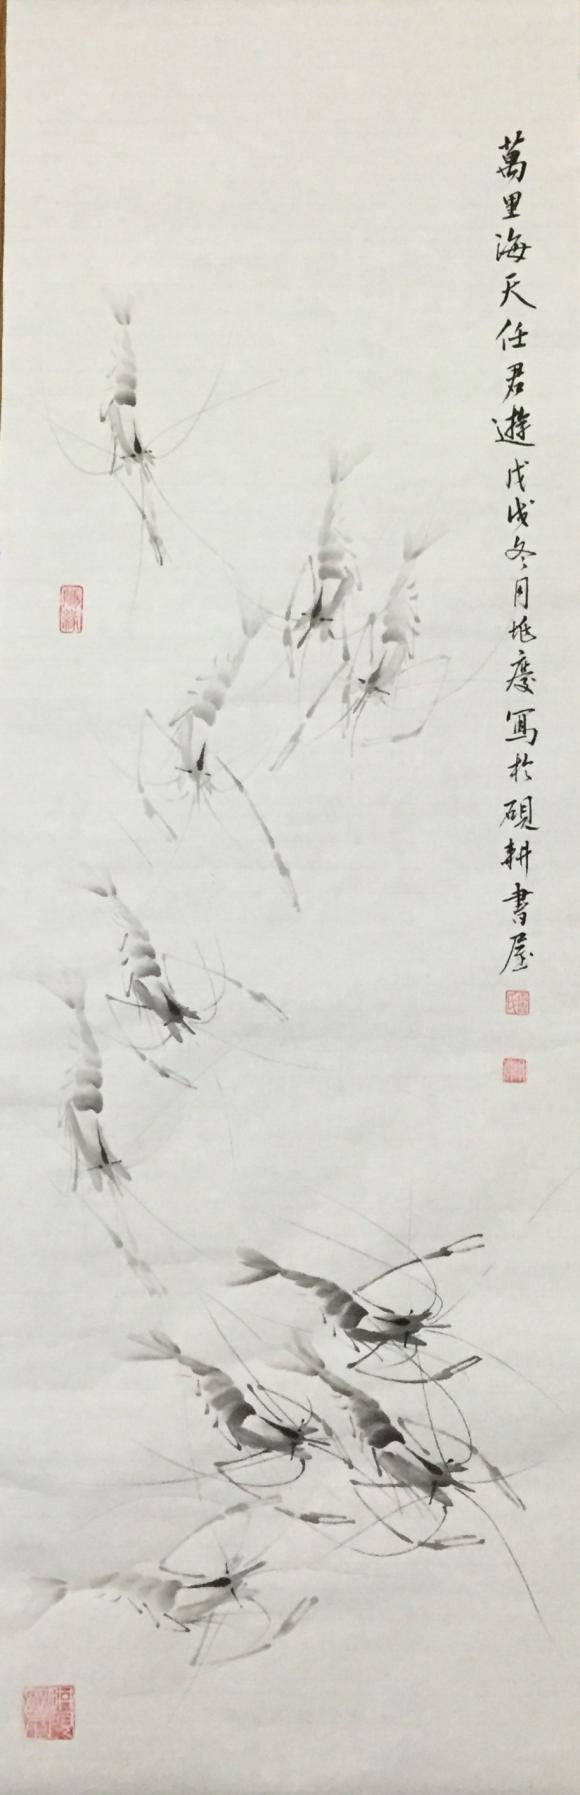 萬里海天任君遊戊戌冬月兆慶寫於硯耕書屋